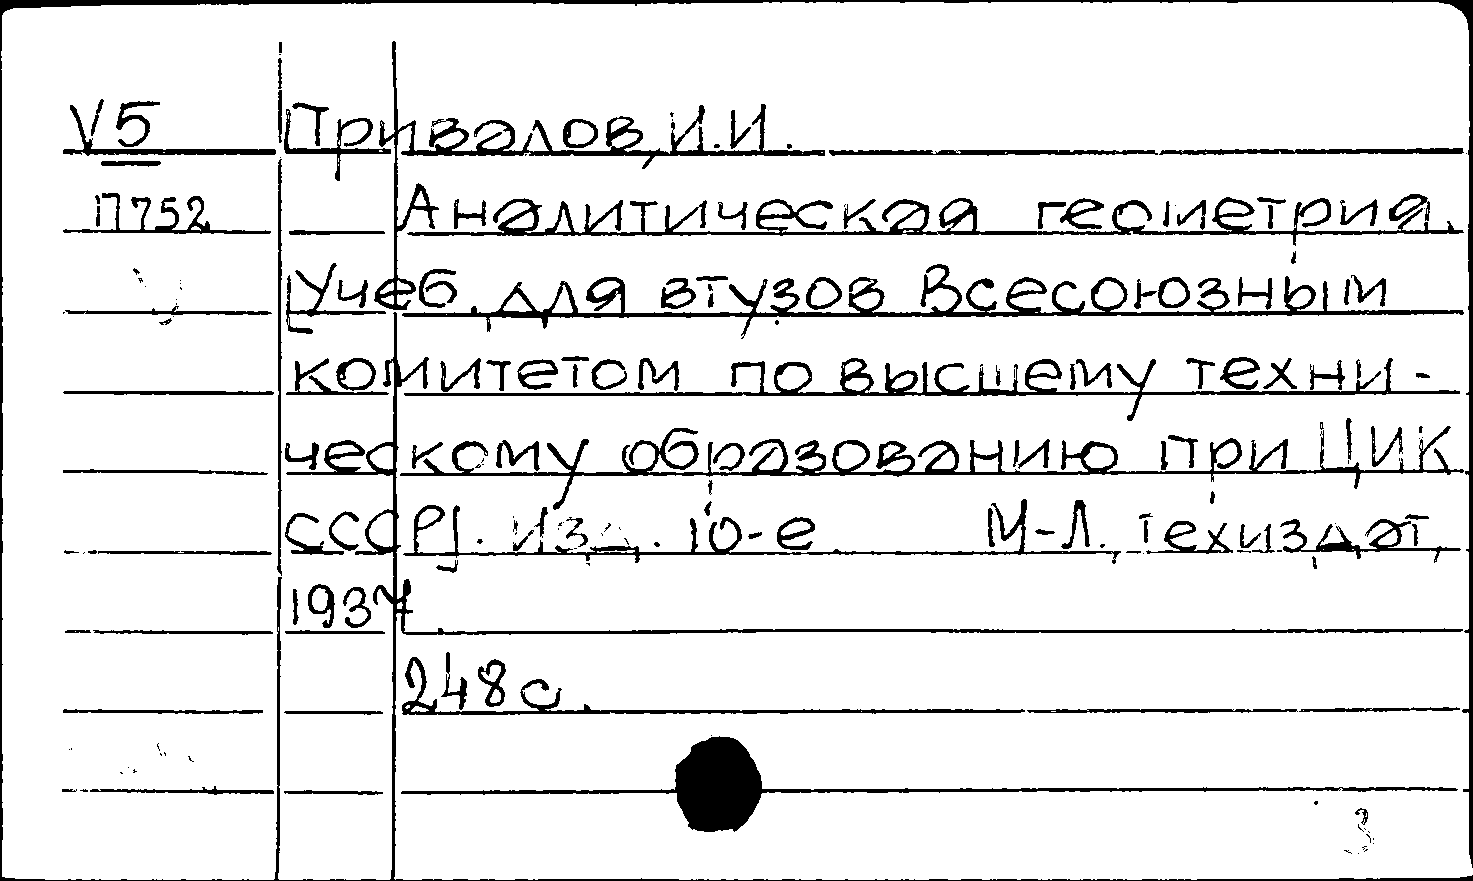 V5 Привалов, И.И.
П752 Аналитическая геометрия.
[Учеб. для втузов Всесоюзным
комитетом по высшему техни-
ческому образованию при ЦИК
СССР]. Изд. 10-е. М-Л., Техиздат,
1937.
248 с.
3